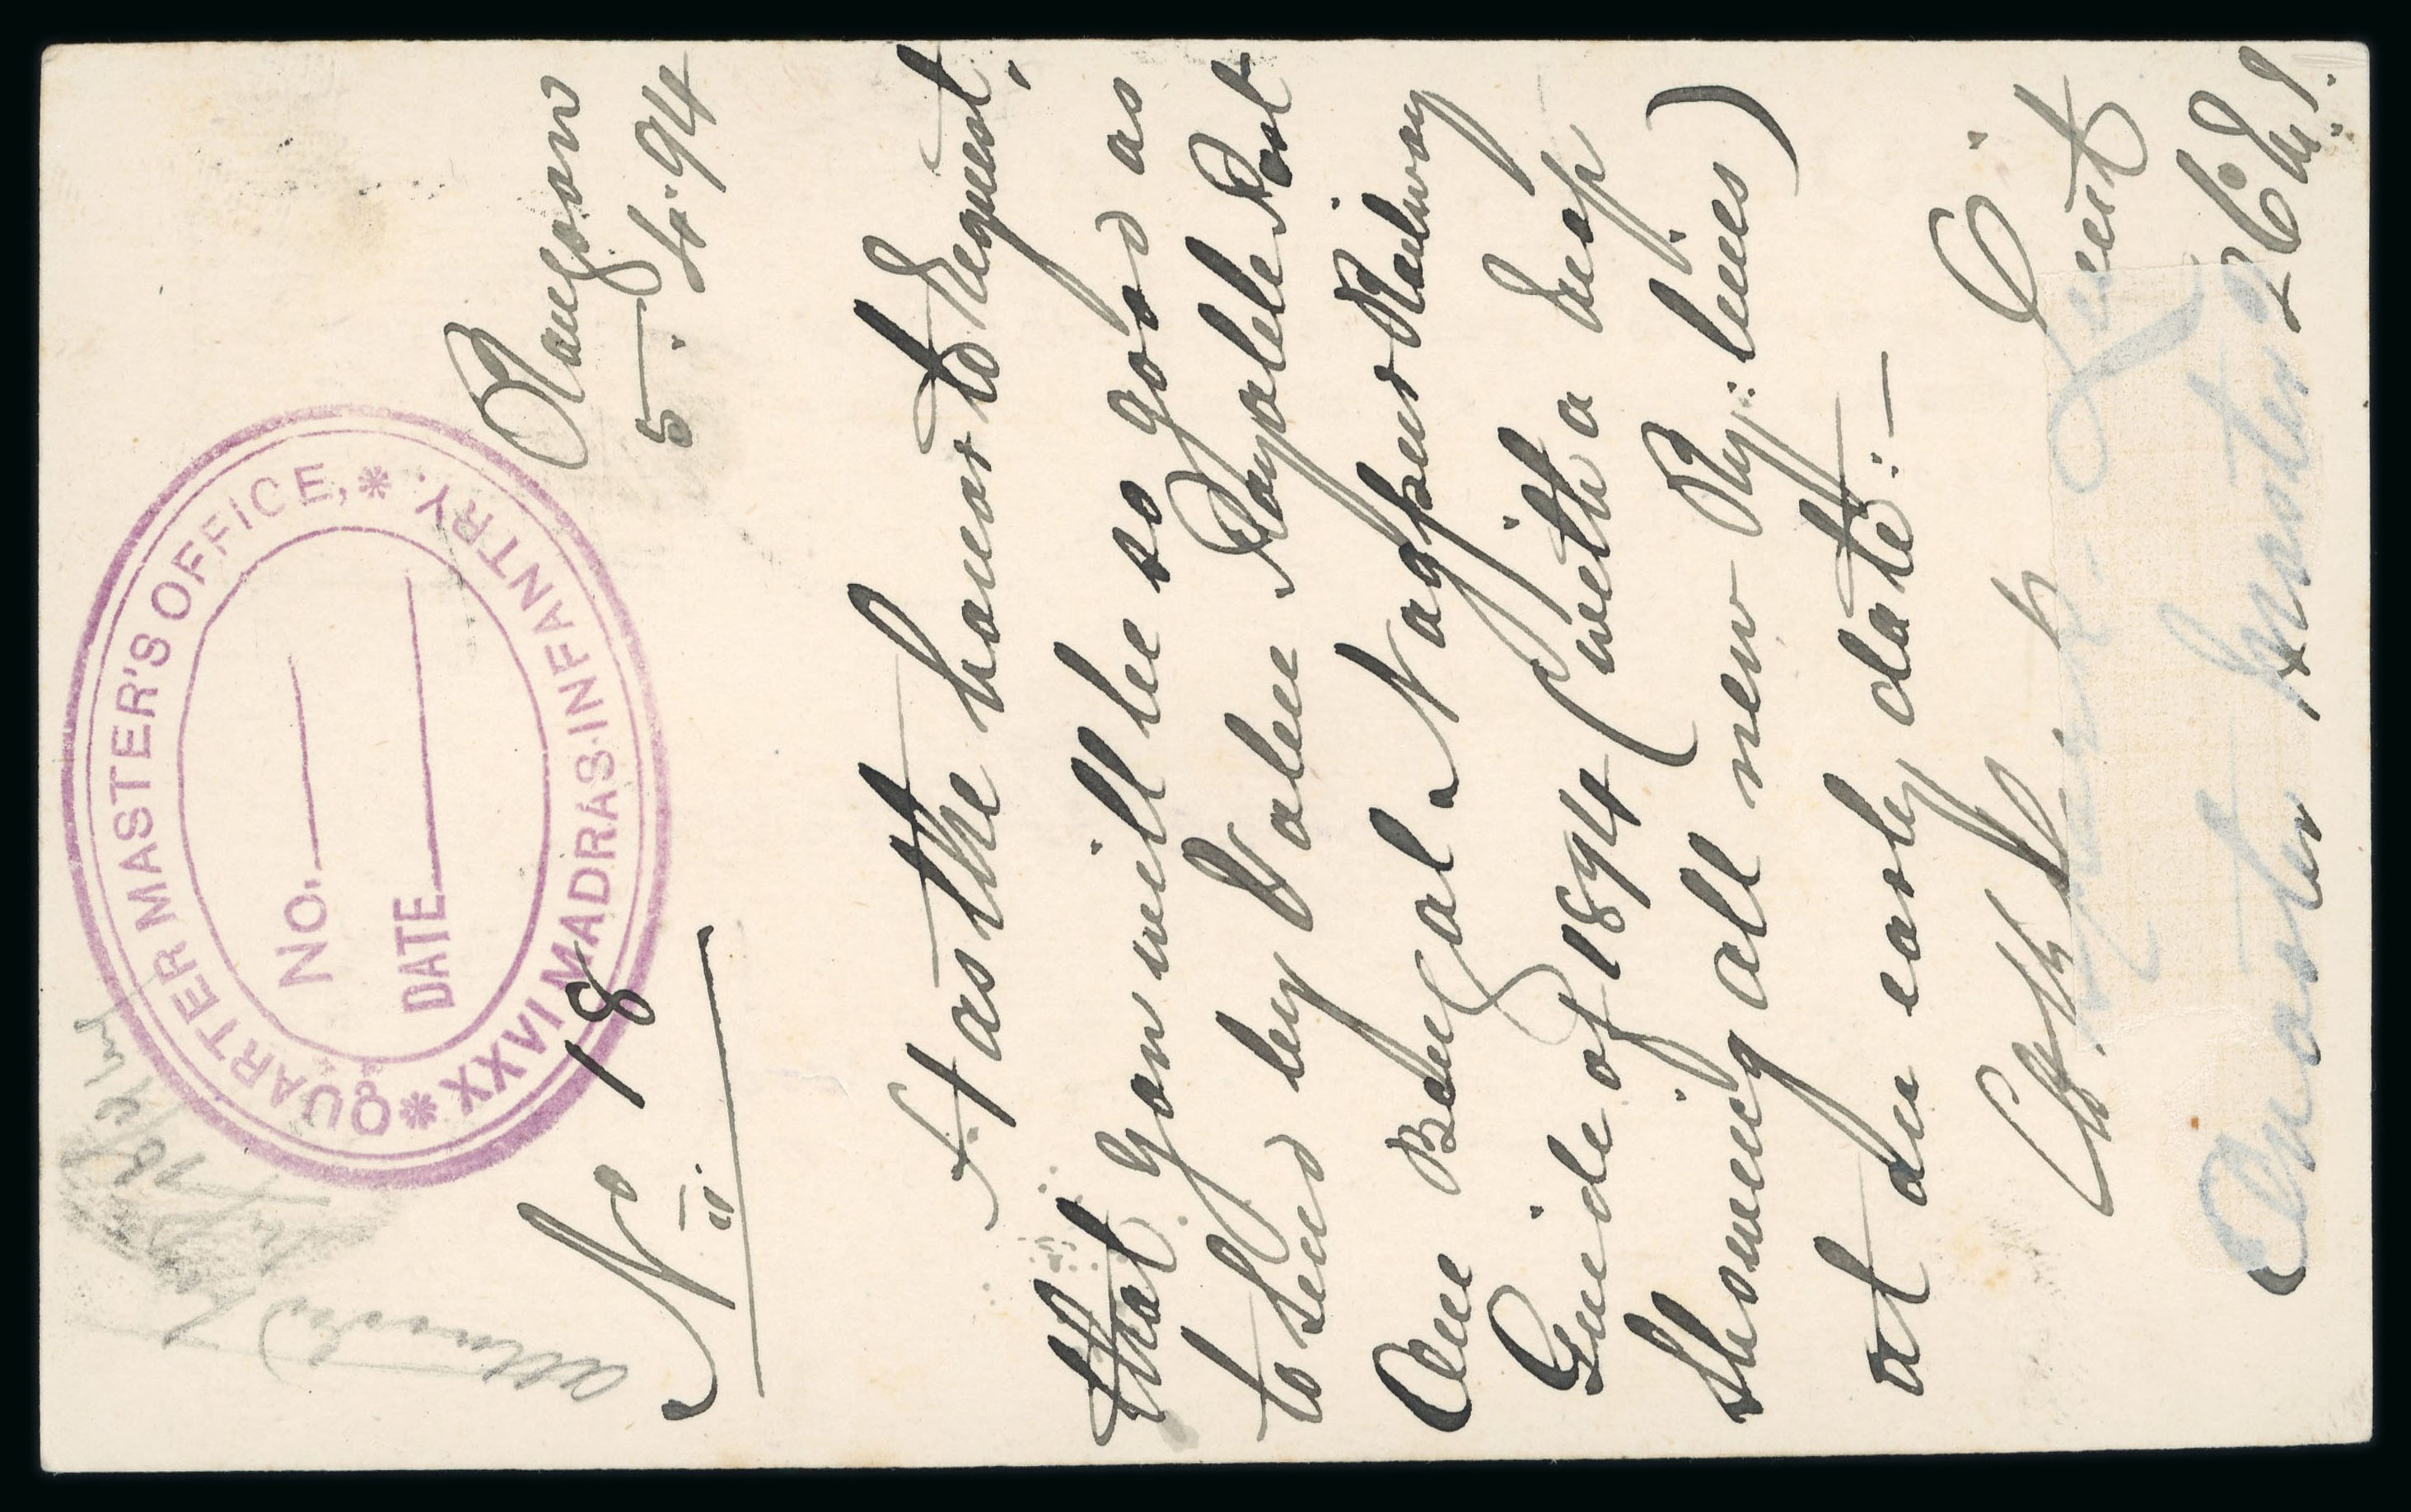 QUARTER MASTER'S OFFICE,
XXVI MADRAS INFANTRY.
NO.
DATE
Rangoon
No 18
5.4.94
Has the honor to request,
that you will be so good as
to send by Value Payable Post
One Bengal Nagpur Railway
Guide of 1894 (with a map
showing all new Ry: lines)
at an early date:—
Lieut
Quarter Master 26